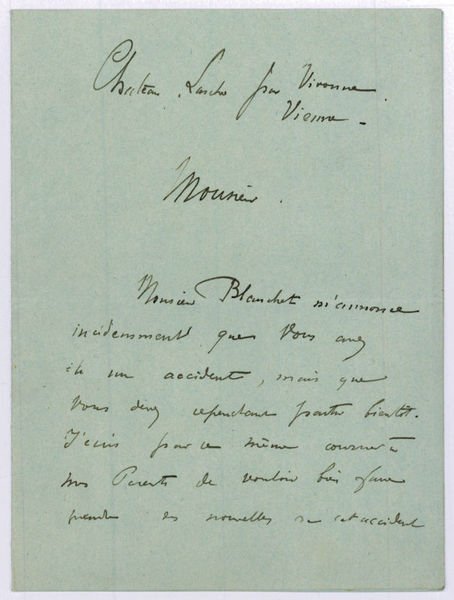 Chateau Larche par Vivonne
Vienne -
Monsieur.
Monsieur Blanchet m'annonce
incidemment que Vous avez
eu un accident, mais que
Vous devez cependant partir bientôt.
J'écris par ce même courrier à
mes Parents de vouloir bien faire
prendre des nouvelles de cet accident